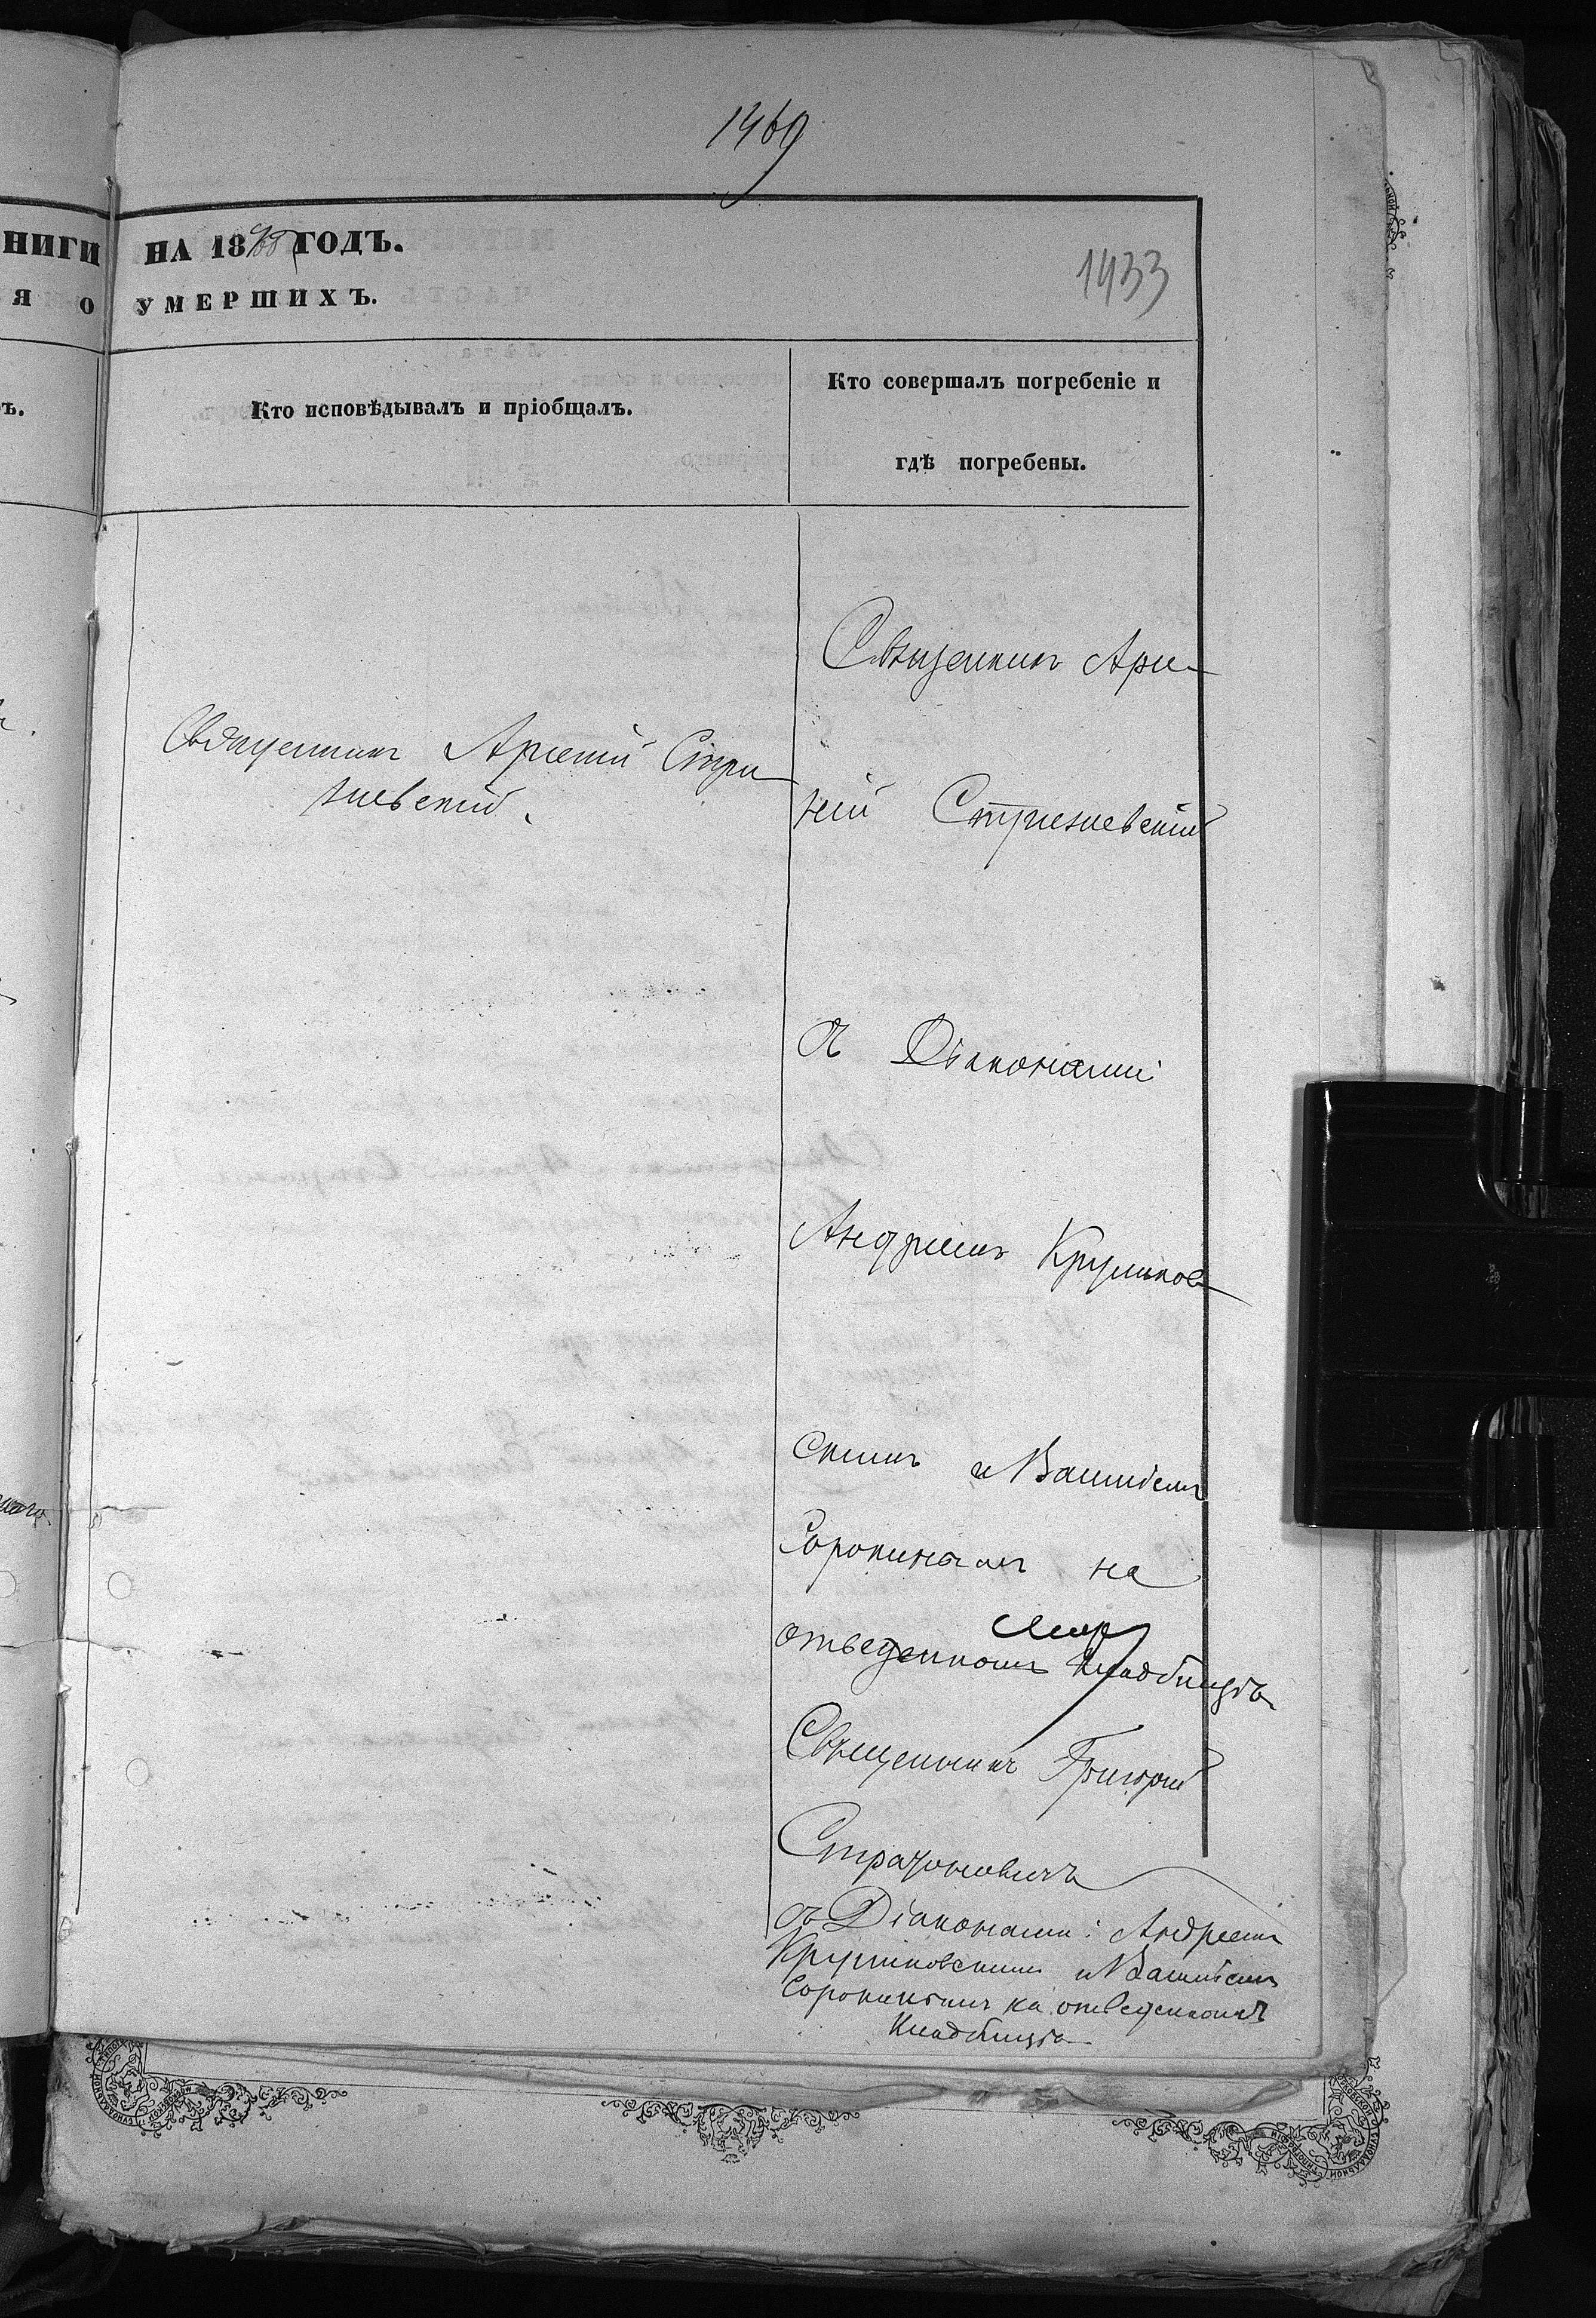 1469
НИГИ НА 1868 ГОДЪ.
Я О УМЕРШИХЪ.
1433
Кто исповѣдывалъ и пріобщалъ.
Кто совершалъ погребеніе и
гдѣ погребены.
ъ.
Священникъ Арсе-
Священникъ Арсеній Стри
жевскій.
ній Стрижевскій
съ Діаконами
Андреемъ Крушков-
скимъ и Василіемъ
Сорокинымъ на
отведенномъ кладбищѣ
Священникъ Григорій
съ Діаконами: Андреемъ
Крушковскимъ и Василіемъ
Сорокинымъ на отведенномъ
кладбищѣ